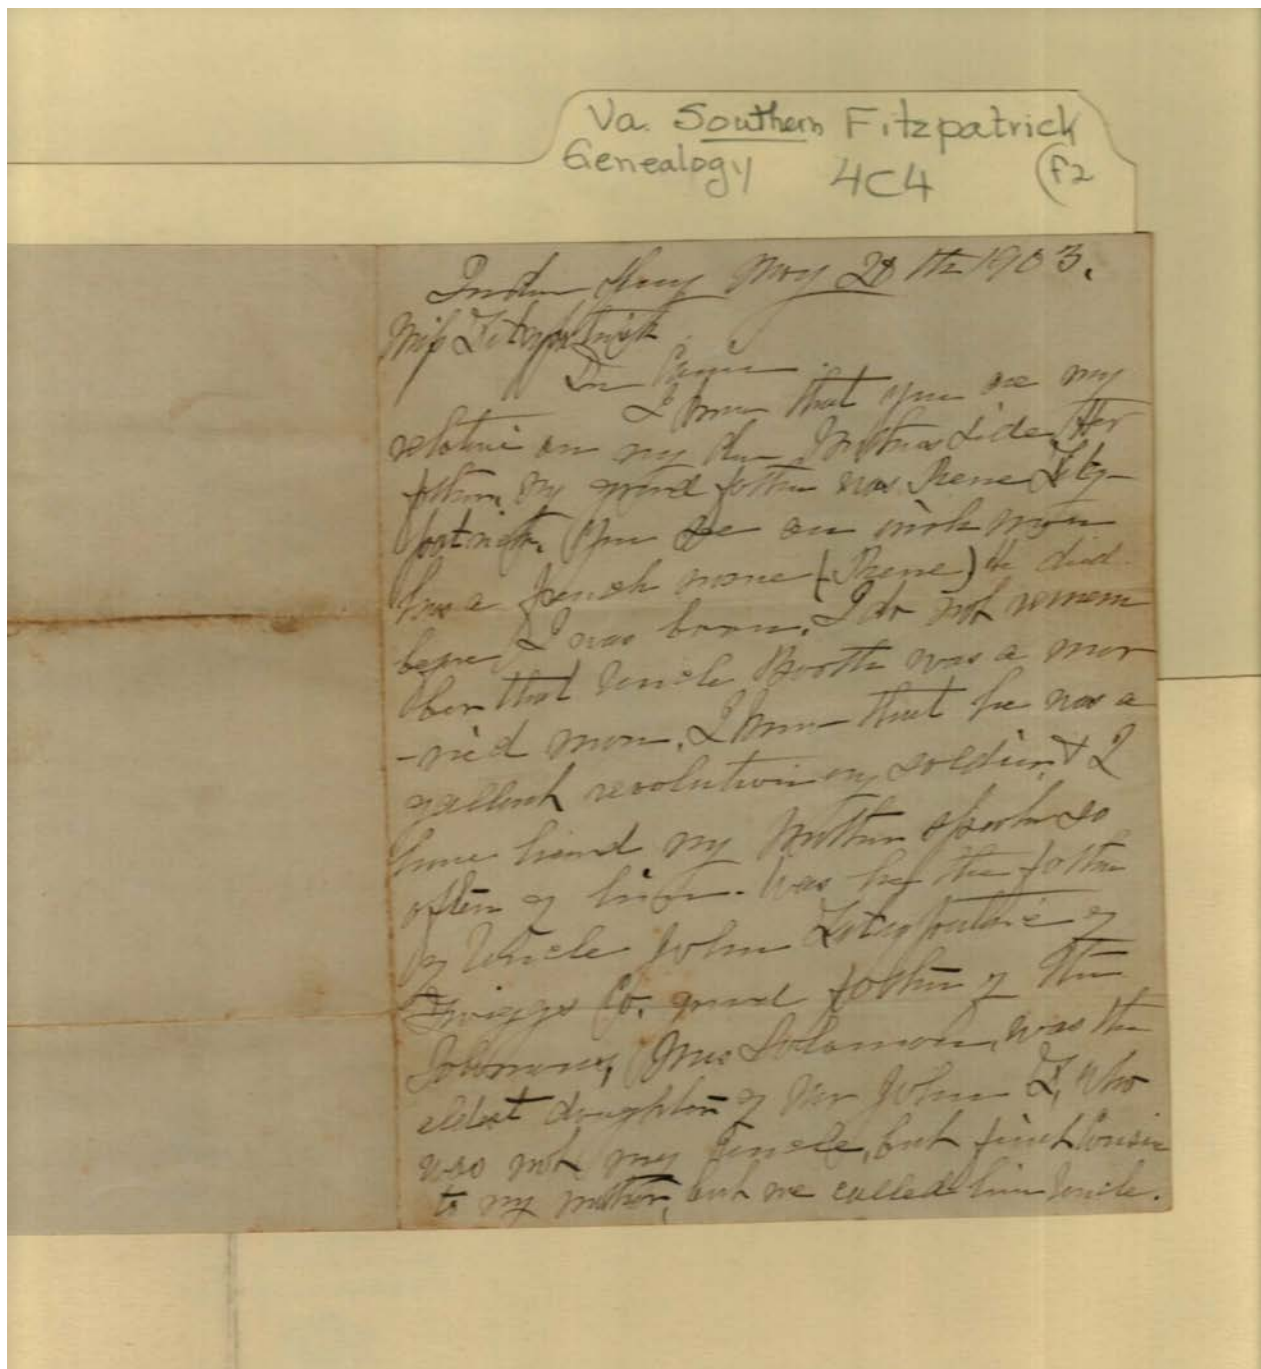 Va. Southern Fitzpatrick
Genealogy 4C4 (F2
Indian Spring May 28th 1903.
Miss Fitzpatrick
Dr Cousin
I know that you are my
relative on my dear Mothers side, Her
father, my grand father was Rene Fitz-
patrick. You see an irish man
has a french name (Rene) He died
before I was born. I do not remem
ber that Uncle Booth was a mar
-ried man. I know that he was a
gallant revolutionary soldier, & I
have heard my Mother speak so
often of him. Was he the father
of Uncle John Fitzpatric of
Twiggs Co. grand father of the
Solomons, Mrs Solomon, was the
eldest daughter of Mr John F, who
was not my Uncle, but first Cousin
to my mother, but we called him Uncle.